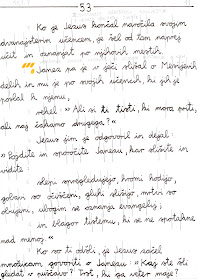 53
Ko je Jezus končal navodila svojim
dvanajsterim učencem, je šel od tam naprej
učit in oznanjat po njihovih mestih.
Janez pa je v ječi slišal o Mesijevih
delih in mu je po svojih učencih, ki jih je
poslal k njemu,
rekel: "Ali si ti tisti, ki mora priti,
ali naj čakamo drugega?"
Jezus jim je odgovoril in dejal:
"Pojdite in sporočite Janezu, kar slišite in
vidite:
slepi spregledujejo, hromi hodijo,
gobavi so očiščeni, gluhi slišijo, mrtvi so
obujeni, ubogim se oznanja evangelij;
in blagor tistemu, ki se ne spotakne
nad menoj."
Ko so ti odšli, je Jezus začel
množicam govoriti o Janezu: "Kaj ste šli
gledat v puščavo? Trst, ki ga veter maje?